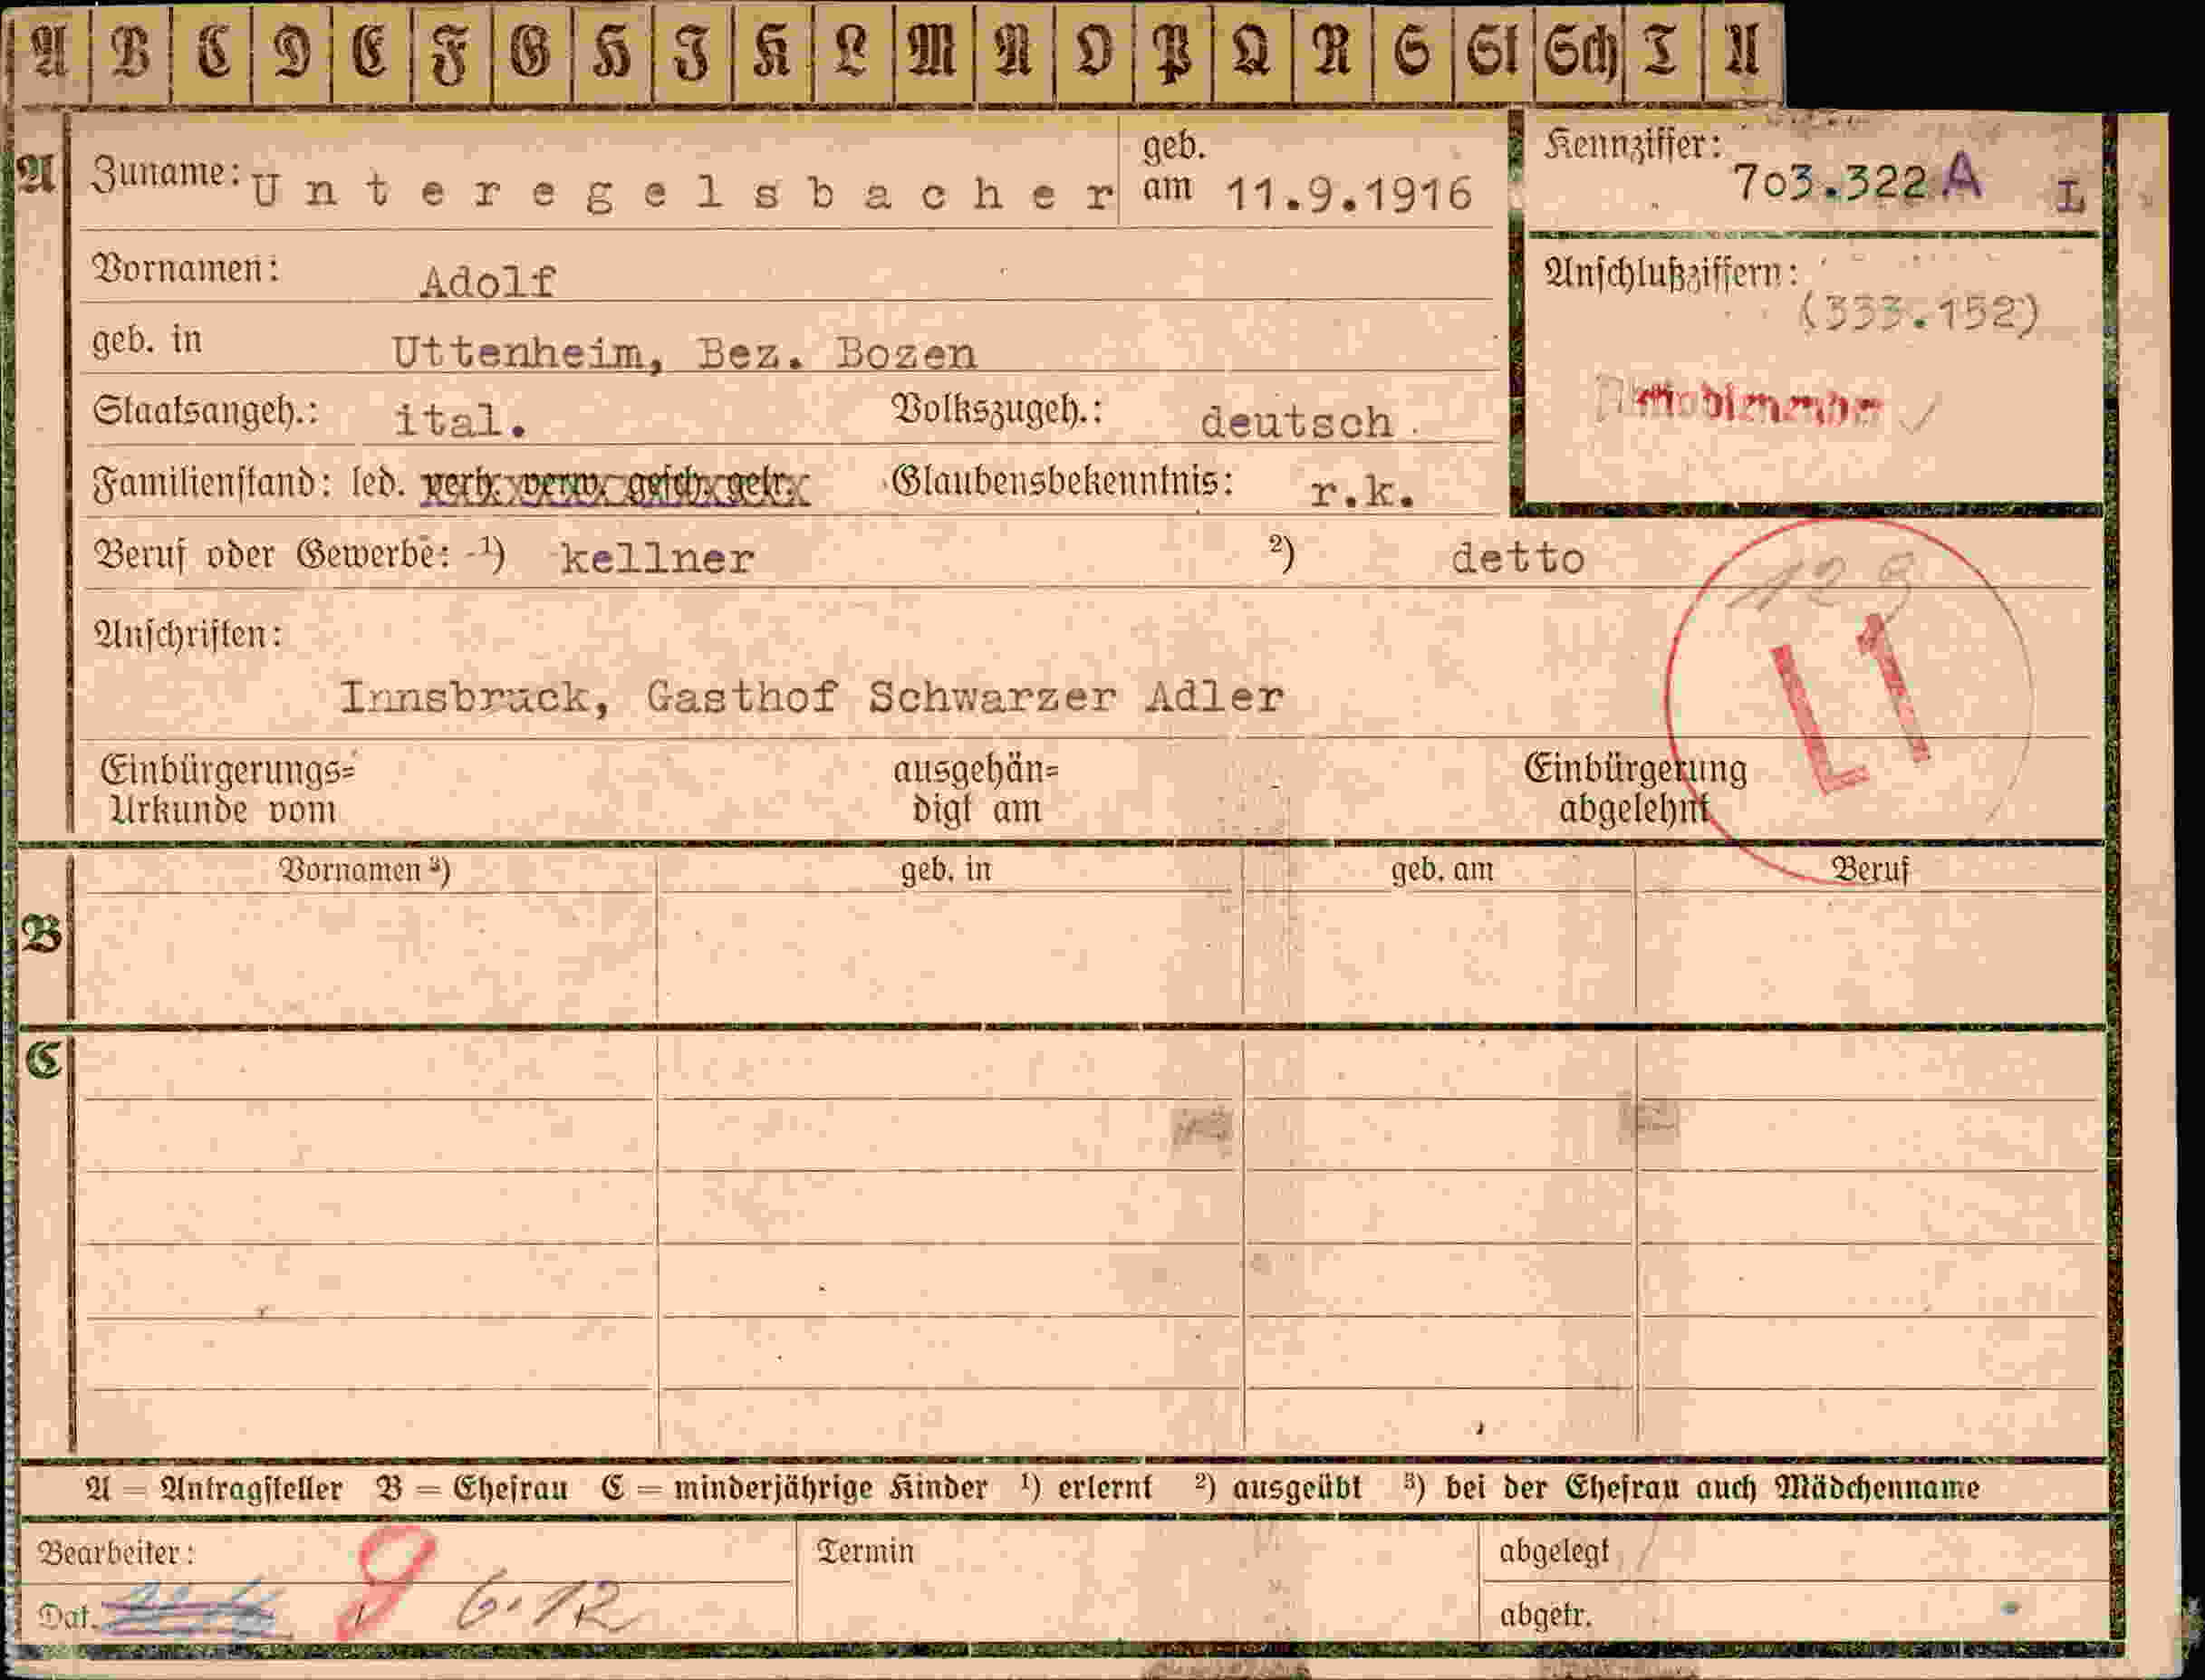 A B C D E F G H I K L M N O P Q R S St Sch T U
A Zuname: Unteregelsbacher geb. am 11.9.1916
Kennziffer: 703.322 A I
Vornamen: Adolf
Anschlußziffern: (333.152)
geb. in Uttenheim, Bez. Bozen
Staatsangeh.: ital. Volkszugeh.: deutsch.
Familienstand: led. verh. verw. gesch. getr. Glaubensbekenntnis: r.k.
Beruf oder Gewerbe: 1) kellner 2) detto
Anschriften:
L1
Innsbruck, Gasthof Schwarzer Adler
Einbürgerungs= ausgehän= Einbürgerung
Urkunde vom digt am abgelehnt
Vornamen 3) geb. in geb. am Beruf
B
C
A = Antragsteller B = Ehefrau C = minderjährige Kinder 1) erlernt 2) ausgeübt 3) bei der Ehefrau auch Mädchenname
Bearbeiter: Termin abgelegt
Dat. 6.12 abgetr.